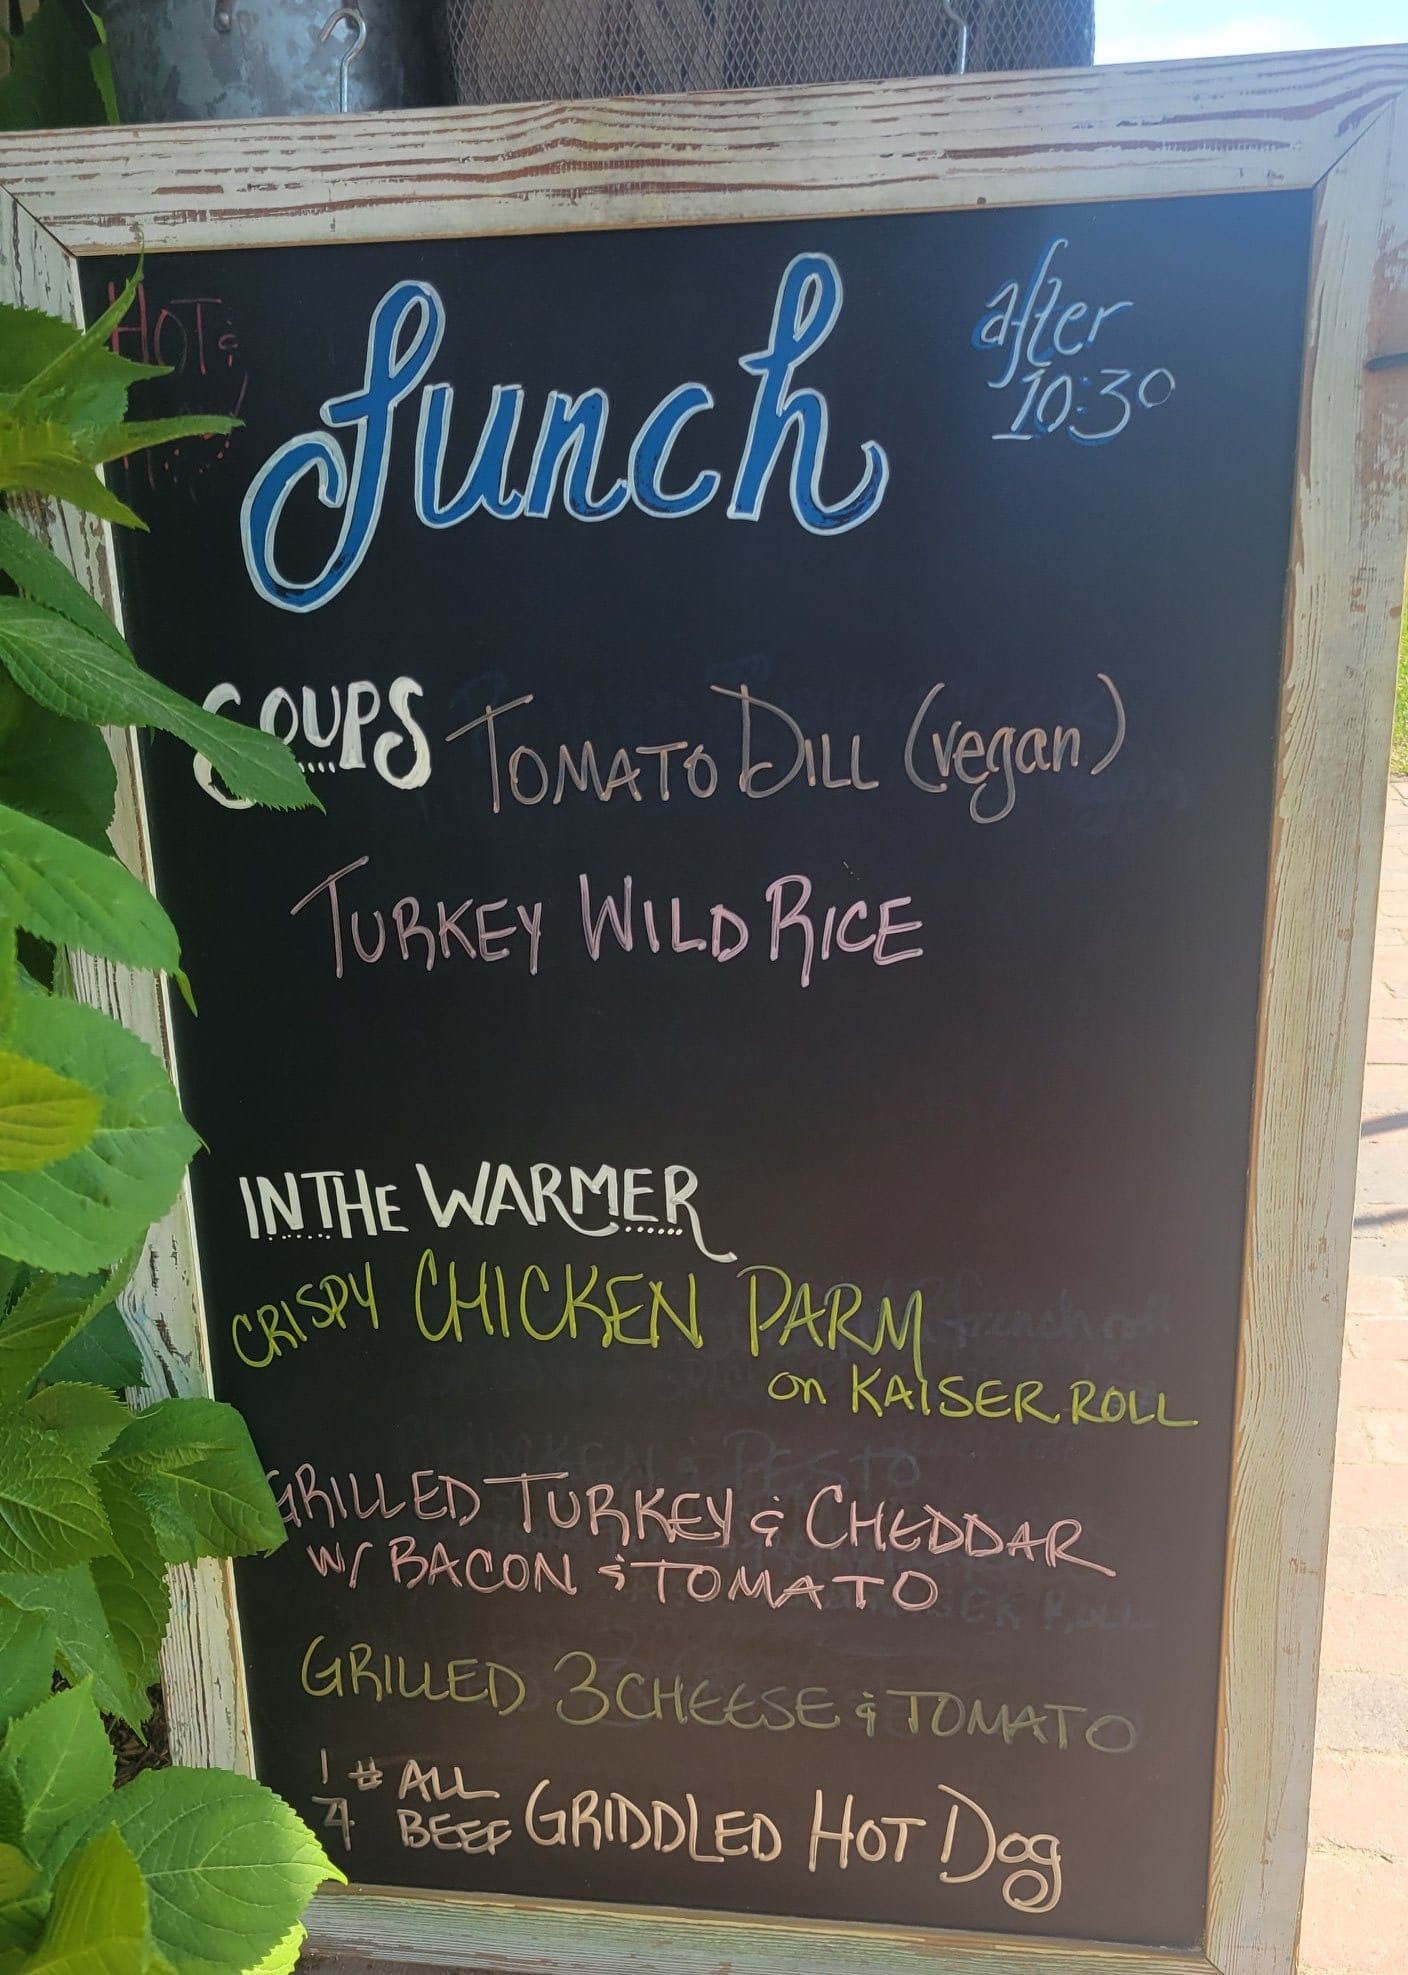 HOT &
Lunch
after
10:30
SOUPS TOMATO DILL (vegan)
TURKEY WILD RICE
IN THE WARMER
CRISPY CHICKEN PARM
on KAISER ROLL
GRILLED TURKEY & CHEDDAR
W/ BACON & TOMATO
GRILLED 3 CHEESE & TOMATO
1/4 # ALL BEEF GRIDDLED HOT Dog